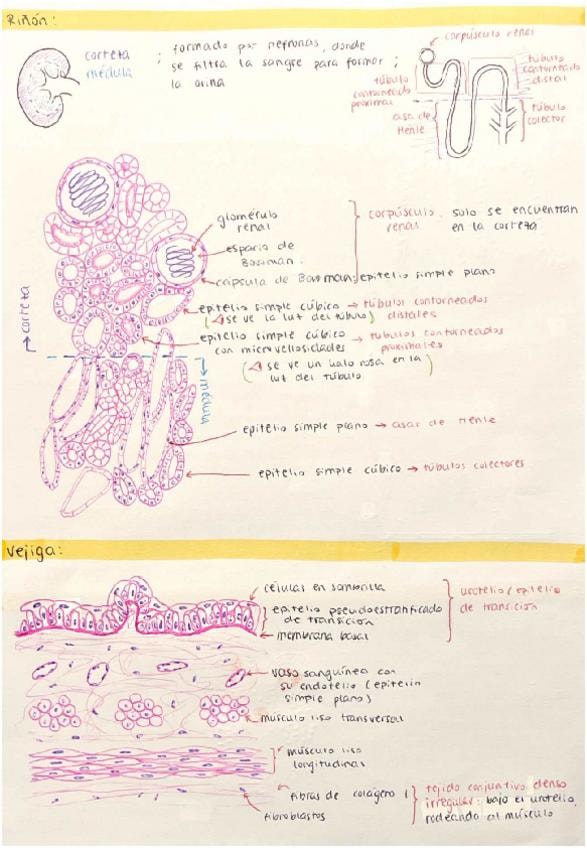 Riñón:
corteza
médula
; formado por nefronas, donde
se filtra la sangre para formar ;
la orina
corpúsculo renal
túbulo
contorneado
proximal
túbulo
contorneado
distal
asa de
Henle
túbulo
colector
glomérulo
renal
espacio de
Bowman.
cápsula de Bowman: epitelio simple plano
corpúsculo
renal
. solo se encuentran
en la corteza
epitelio simple cúbico → túbulos contorneados
(⚠ se ve la luz del túbulo) distales
epitelio simple cúbico
con microvellosidades → túbulos contorneados
proximales
(⚠ se ve un halo rosa en la
luz del túbulo)
→ corteza
→ médula
epitelio simple plano → asas de Henle
epitelio simple cúbico → túbulos colectores
Vejiga:
células en sombrilla
epitelio pseudoestratificado
de transición
membrana basal
urotelio/epitelio
de transición
vaso sanguíneo con
su endotelio (epitelio
simple plano)
músculo liso transversal
músculo liso
longitudinas
fibras de colágeno
fibroblastos
tejido conjuntivo denso
irregular: bajo el urotelio,
rodeando al músculo